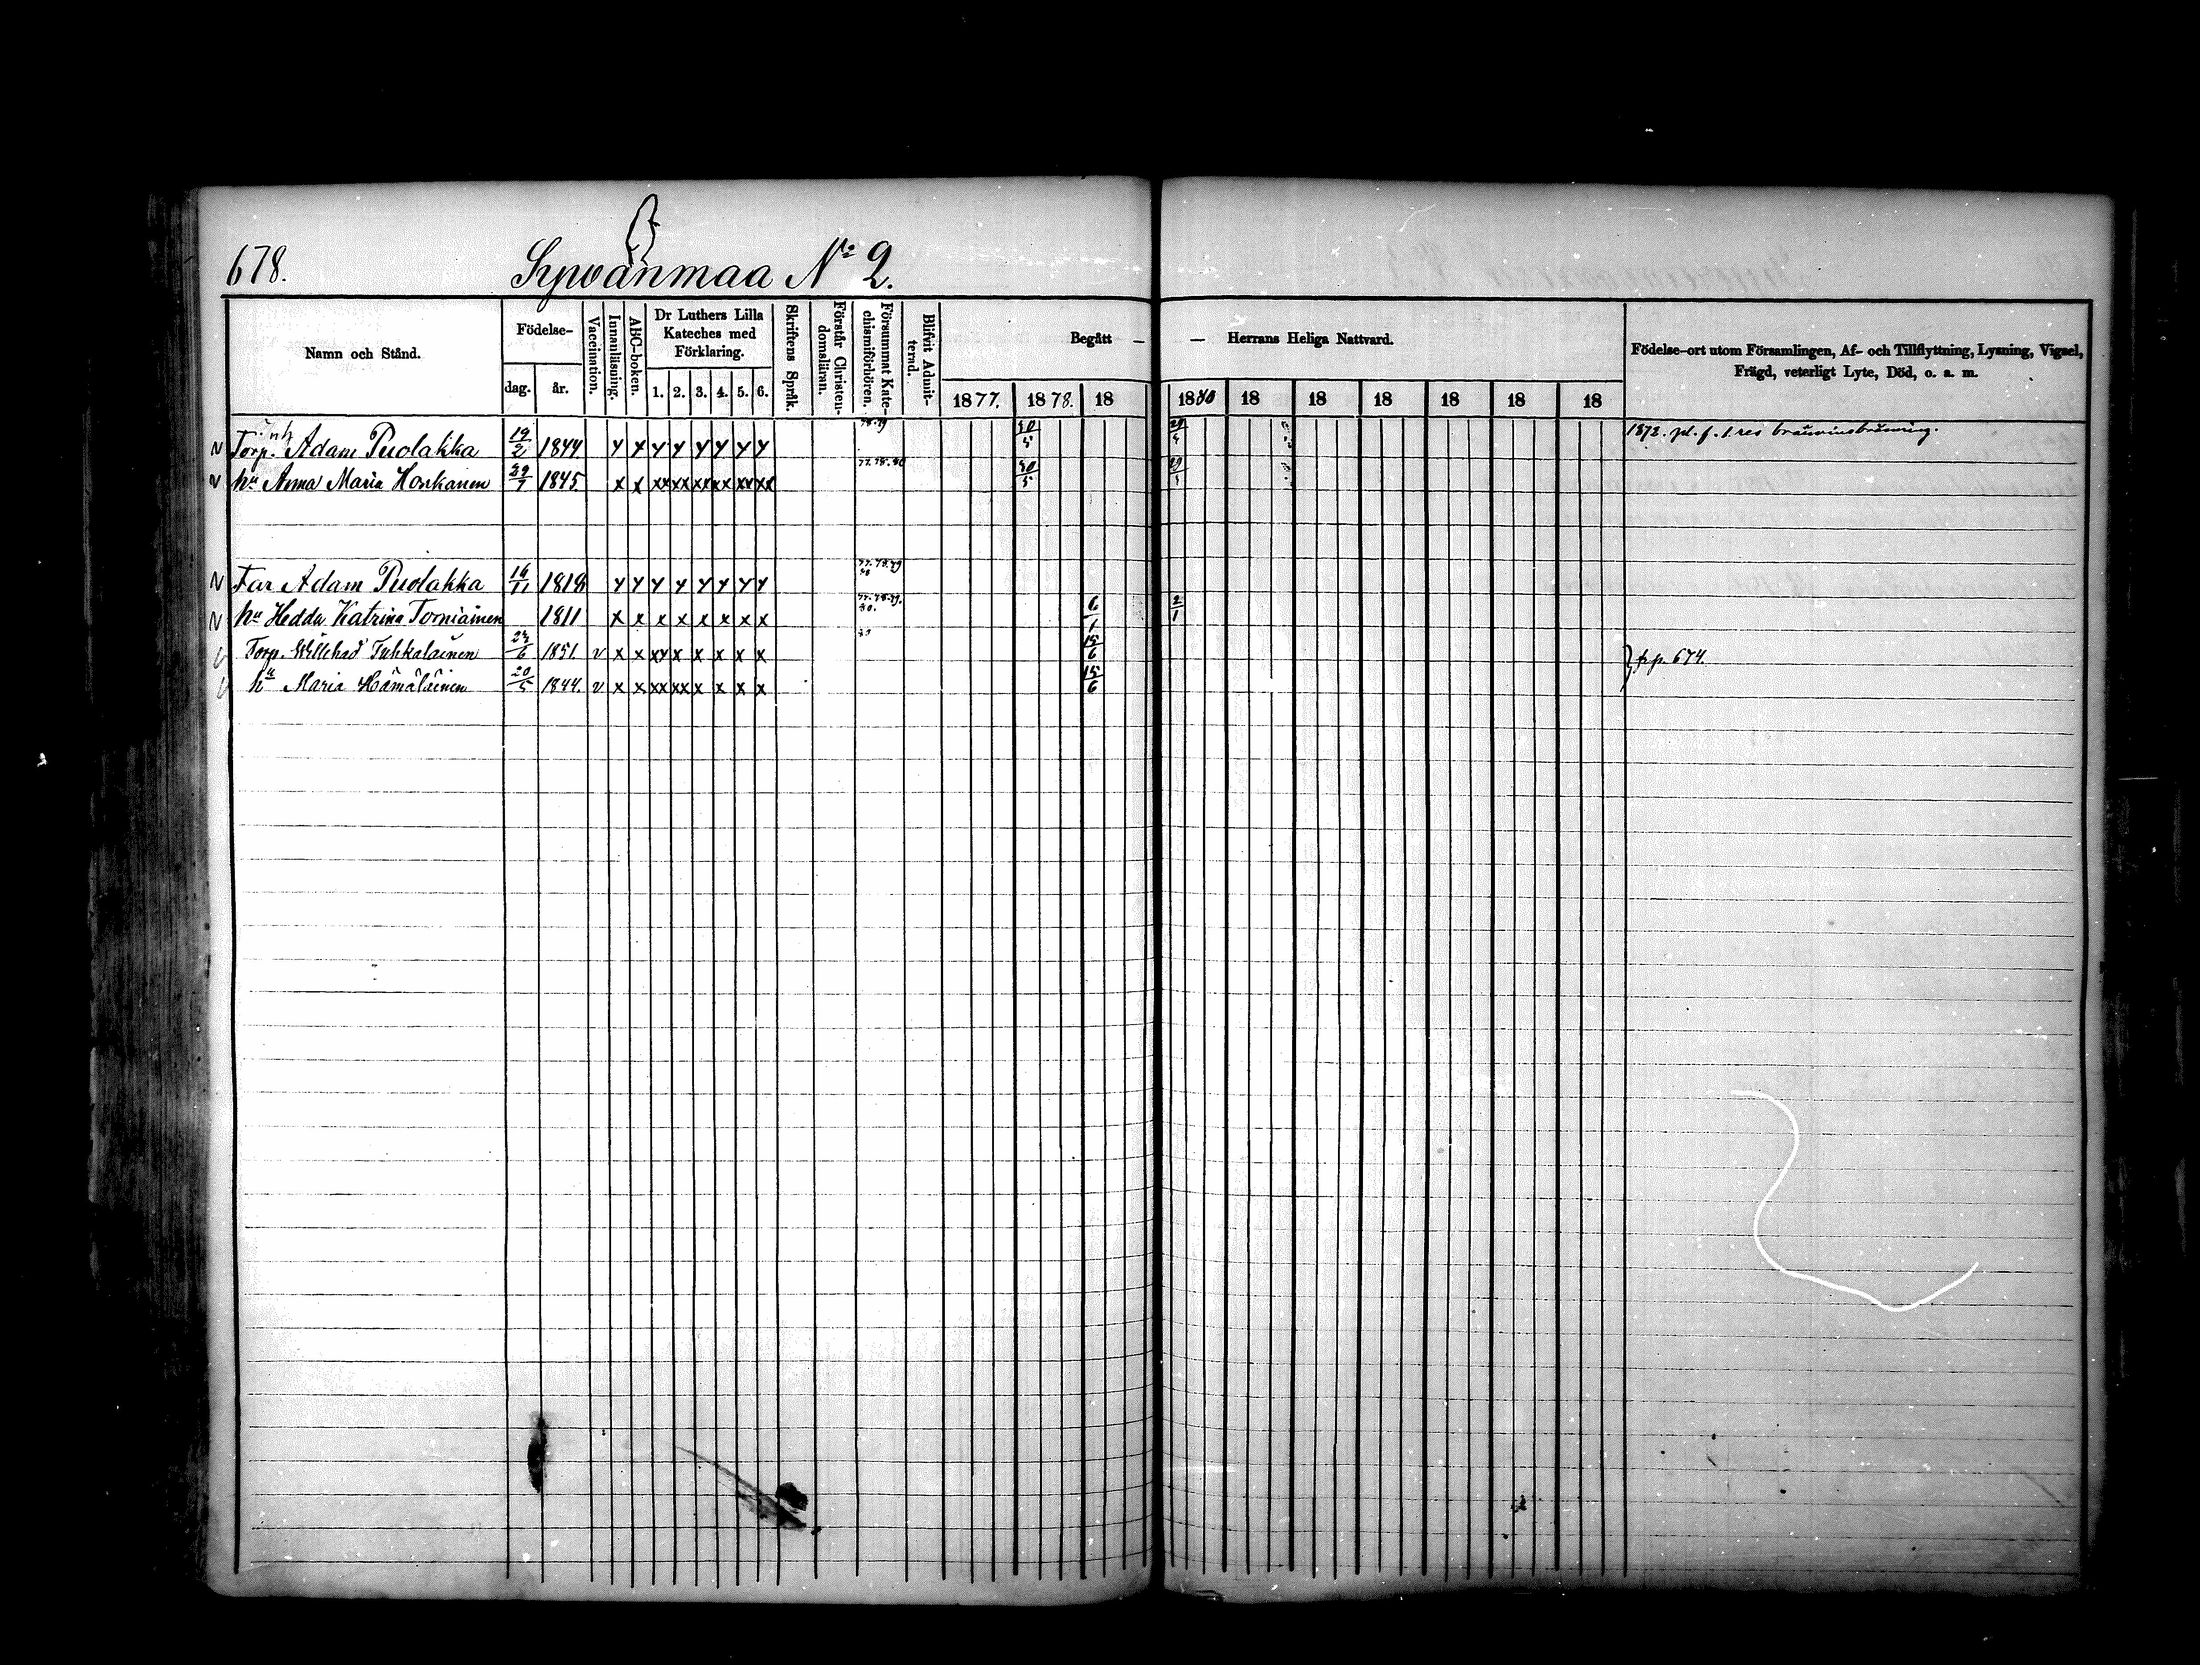 678.
Sywänmaa No 2.
Namn och Stånd.
Födelse-
dag.
år.
Vaccination.
Innanläsning.
ABC-boken.
Dr Luthers Lilla
Kateches med
Förklaring.
1. 2. 3. 4. 5. 6.
Skriftens Språk.
Förstår Christen-
domsläran.
Försummat Kate-
chismiförhören.
Blifvit Admit-
terad.
Begått — — Herrans Heliga Nattvard.
1877. 1878. 18 1880 18 18 18 18 18 18
Födelse-ort utom Församlingen, Af- och Tillflyttning, Lysning, Vigsel,
Frägd, veterligt Lyte, Död, o. a. m.
Torp. Adam Puolakka 19/2 1844 y y y y y y y y 78.79 30/5 1872. pl. f. 1. res bränvinsbränning.
hu Anna Maria Honkanen 29/7 1845 x x xx xx xx xx xx xx 77.78.80 30/5
Far Adam Puolakka 16/11 1818 y y y y y y y y 77.78.79
hu Hedda Katrina Torniainen 1811 x x x x x x x x 77.78.79. 80. 6/1 2/1
Torp. Willehad Tuhkalainen 24/6 1851 v x x xy x x x x x 15/6
hu Maria Hämäläinen 20/5 1844. v x x xx xx x x x x 15/6
} fr p. 674.